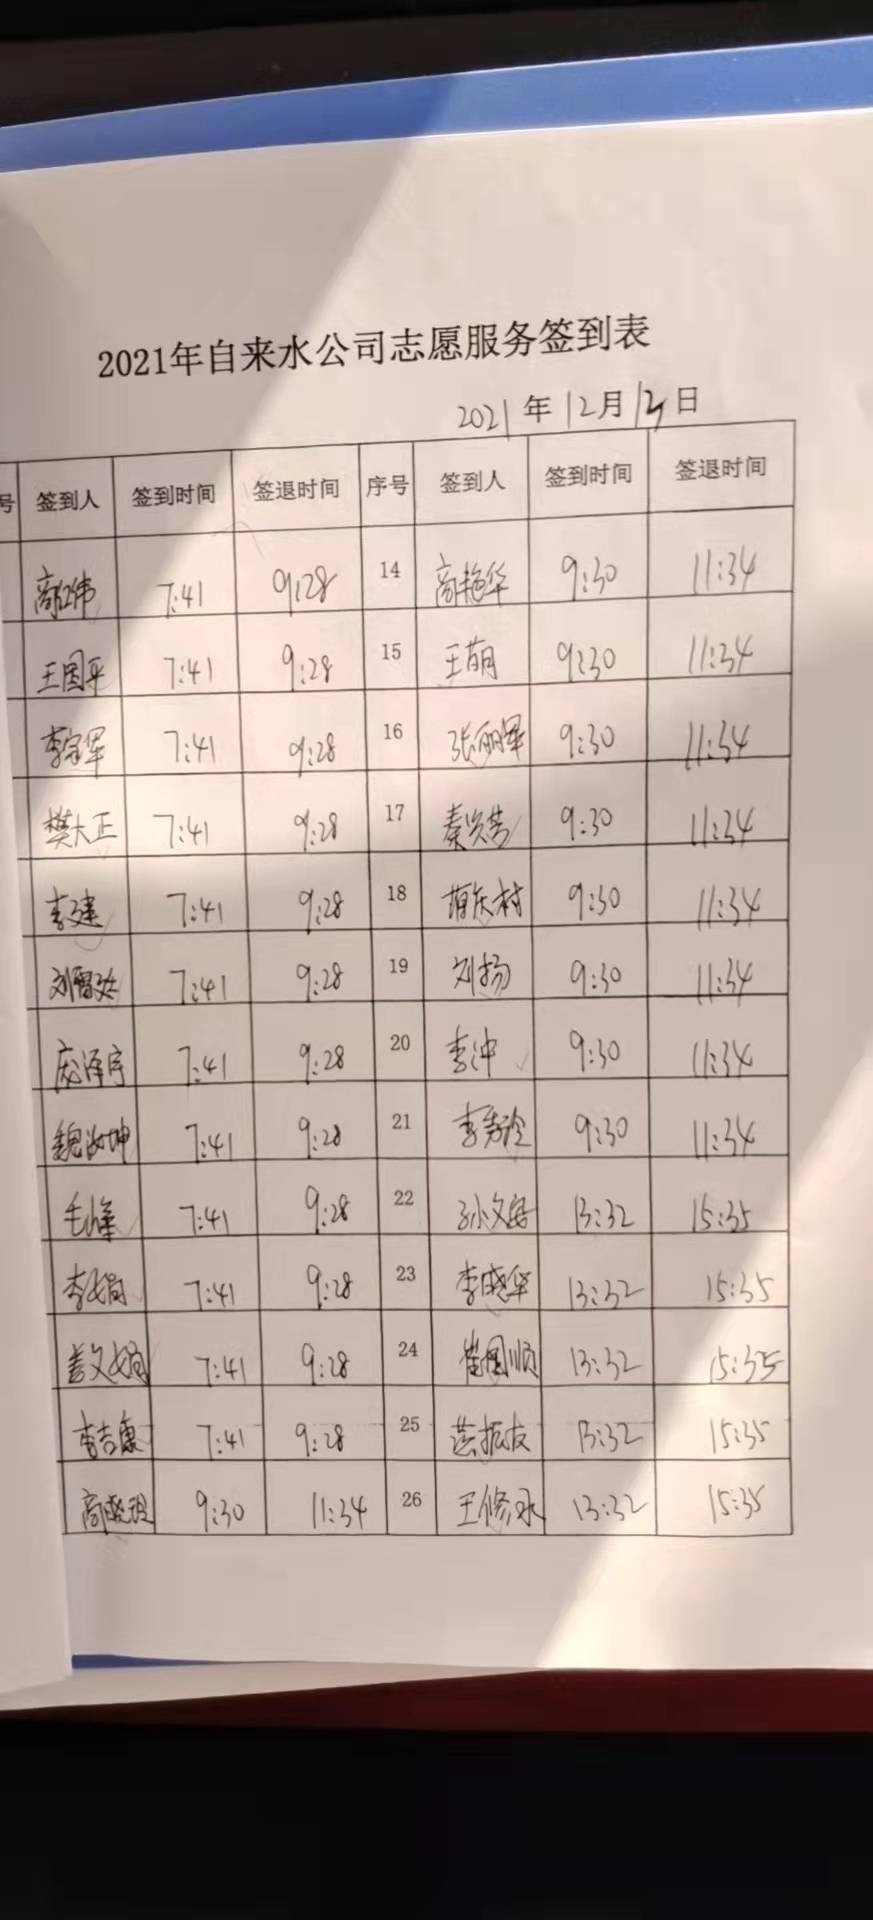 2021年自来水公司志愿服务签到表
2021年12月日
号 签到人 签到时间 签退时间 序号 签到人 签到时间 签退时间
高红伟 7:41 9:28 14 高艳华 9:30 11:34
王国平 7:41 9:28 15 王萌 9:30 11:34
李宗军 7:41 9:28 16 张丽军 9:30 11:34
樊大正 7:41 9:28 17 9:30 11:34
李建 7:41 9:28 18 9:30 11:34
7:41 9:28 19 刘扬 9:30 11:34
庞泽宇 7:41 9:28 20 李冲 9:30 11:34
魏汝坤 7:41 9:28 21 李秀玲 9:30 11:34
毛峰 7:41 9:28 22 13:32 15:35
李娟 7:41 9:28 23 李晓华 13:32 15:35
姜文娟 7:41 9:28 24 崔国顺 13:32 15:35
李吉康 7:41 9:28 25 13:32 15:35
高晓玲 9:30 11:34 26 王修永 13:32 15:35